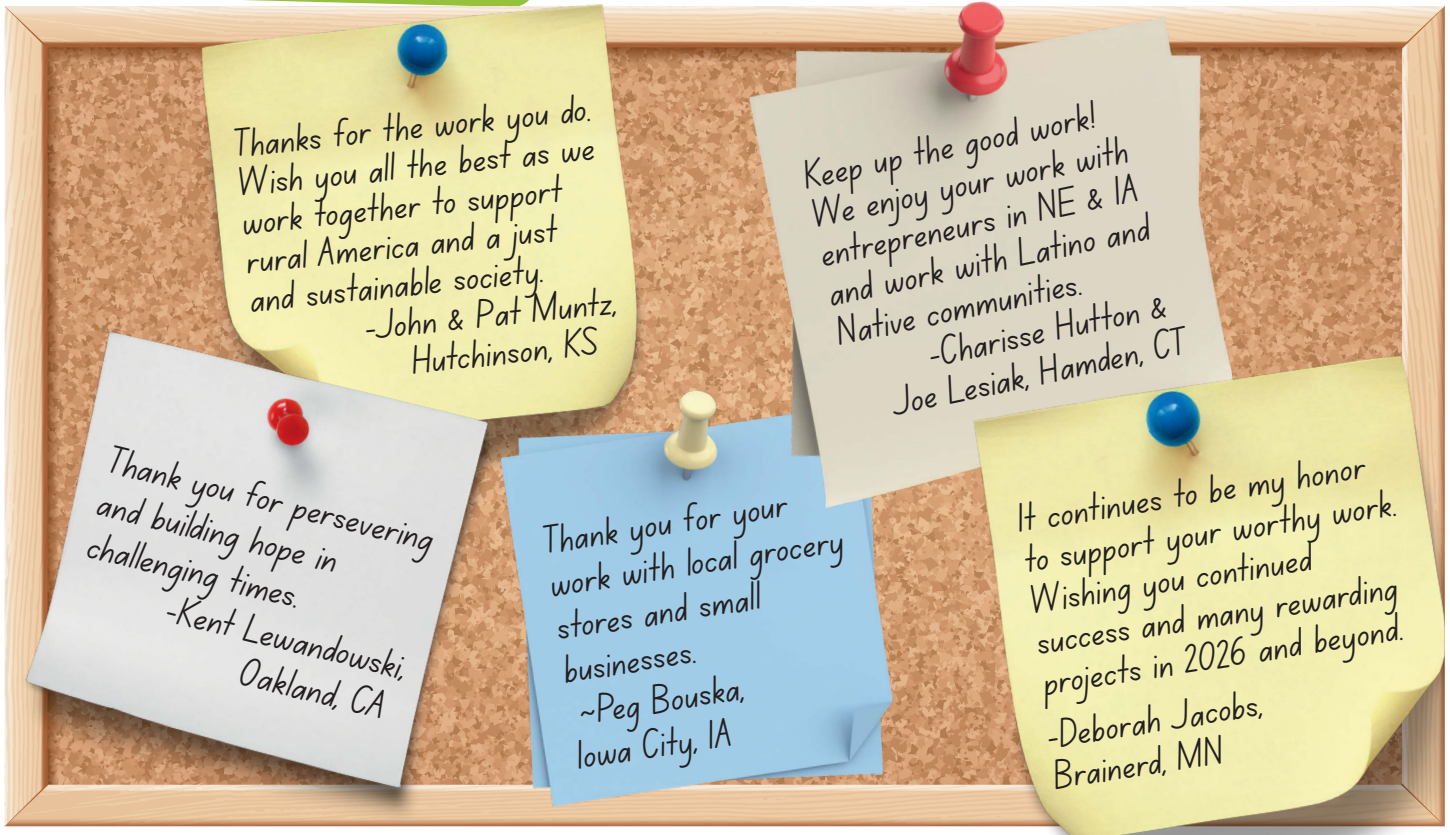 Thanks for the work you do.
Wish you all the best as we
work together to support
rural America and a just
and sustainable society.
-John & Pat Muntz,
Hutchinson, KS
Keep up the good work!
We enjoy your work with
entrepreneurs in NE & IA
and work with Latino and
Native communities.
-Charisse Hutton &
Joe Lesiak, Hamden, CT
Thank you for persevering
and building hope in
challenging times.
-Kent Lewandowski,
Oakland, CA
Thank you for your
work with local grocery
stores and small
businesses.
~Peg Bouska,
Iowa City, IA
It continues to be my honor
to support your worthy work.
Wishing you continued
success and many rewarding
projects in 2026 and beyond.
-Deborah Jacobs,
Brainerd, MN